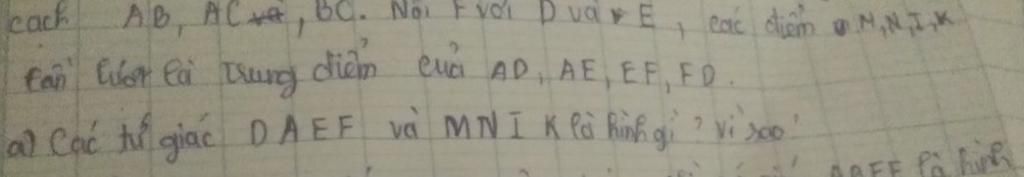 cách AB, AC, BC. Nối F với D và E, các điểm M, N, I, K
lần lượt là trung điểm của AD, AE, EF, FD.
a) Các tứ giác DAEF và MNIK là hình gì? Vì sao?
là hình